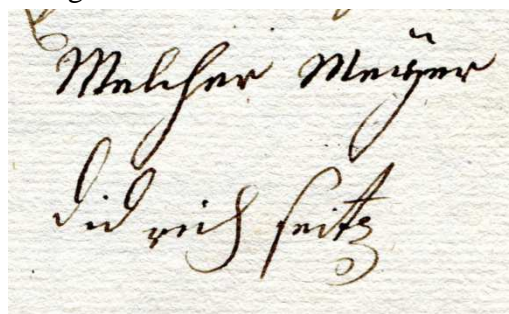 Melcher Meÿer
did reich seitz